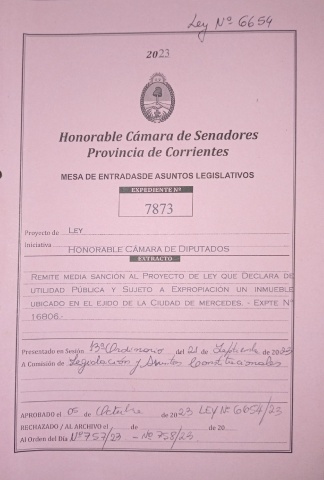 Ley Nº 6654
2023
Honorable Cámara de Senadores
Provincia de Corrientes
MESA DE ENTRADASDE ASUNTOS LEGISLATIVOS
EXPEDIENTE Nº
7873
Proyecto de LEY
Iniciativa HONORABLE CÁMARA DE DIPUTADOS
EXTRACTO
REMITE MEDIA SANCION AL PROYECTO DE LEY QUE DECLARA DE
UTILIDAD PÚBLICA Y SUJETO A EXPROPIACIÓN UN INMUEBLE
UBICADO EN EL EJIDO DE LA CIUDAD DE MERCEDES - EXPTE Nº
16806.-
Presentado en Sesión 13º Ordinario del 21 de Septiembre de 2023
A Comisión de Legislación y Asuntos Constitucionales
APROBADO el 05 de Octubre de 2023 LEY Nº 6654/23
RECHAZADO / AL ARCHIVO el de de 20
Al Orden del Día Nº 757/23 - Nº 758/23